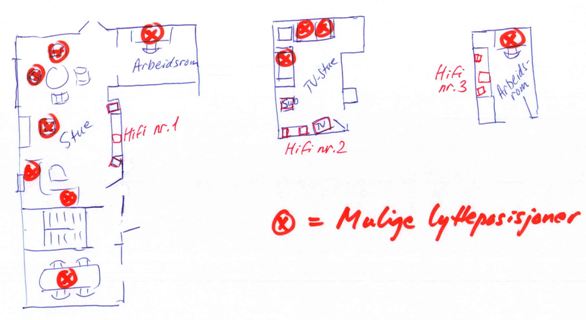 Arbeidsrom
Stue
Hifi nr.1
TV-stue
Sub
TV
Hifi nr.2
Hifi
nr.3
Arbeids-
rom
= Mulige lytteposisjoner